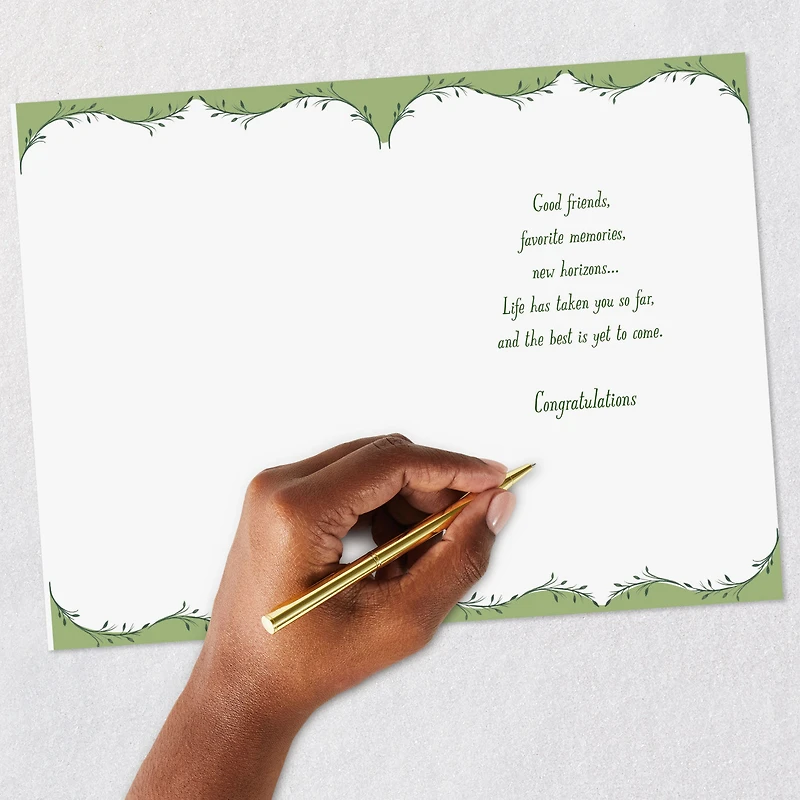 Good friends,
favorite memories,
new horizons...
Life has taken you so far,
and the best is yet to come.
Congratulations